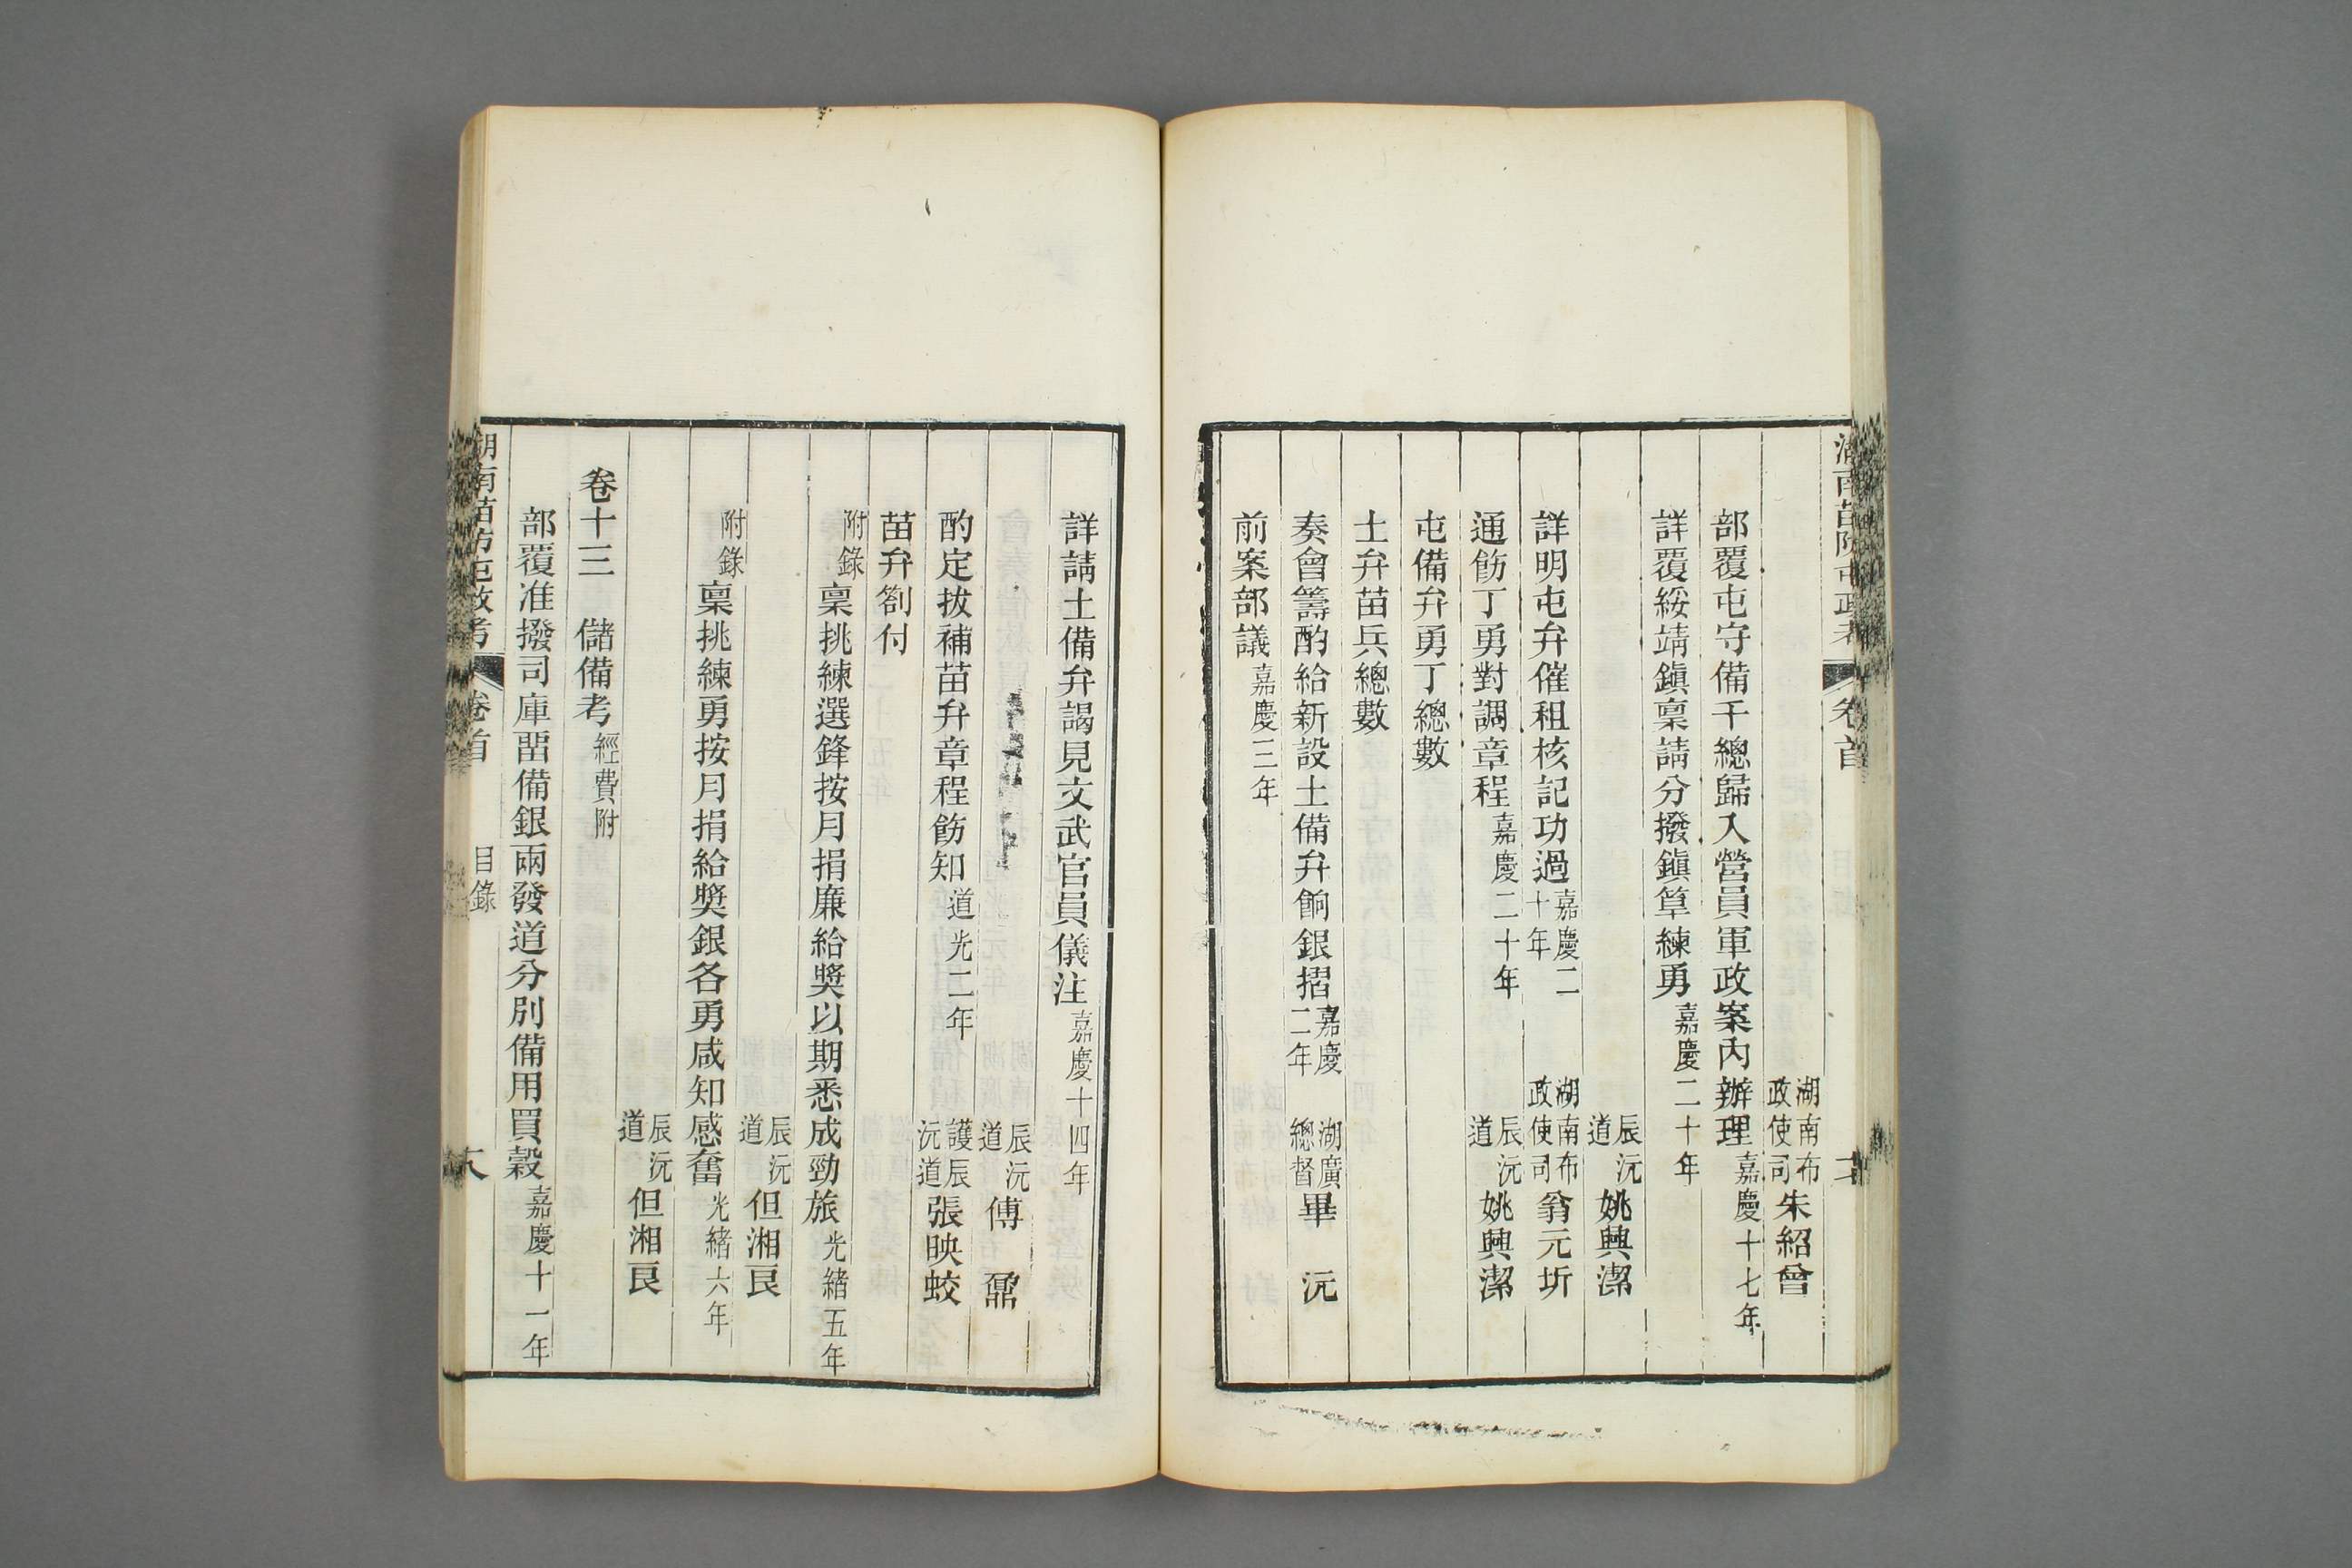 湖南苗防屯政考 卷首
湖南布政使司朱紹曾
部覆屯守備千總歸入營員軍政案內辦理嘉慶十七年
詳覆綏靖鎭稟請分撥鎭筸練勇嘉慶二十年
辰沅道姚興潔
詳明屯弁催租核記功過嘉慶二十年 湖南布政使司翁元圻
通飭丁勇對調章程嘉慶二十年 辰沅道姚興潔
屯備弁勇丁總數
土弁苗兵總數
奏會籌酌給新設土備弁餉銀摺嘉慶二年 湖廣總督畢沅
前案部議嘉慶三年
詳請土備弁謁見文武官員儀注嘉慶十四年
辰沅道傅鼐
酌定拔補苗弁章程飭知道光二年 護辰沅道張映蛟
苗弁劄付
附錄稟挑練選鋒按月捐廉給獎以期悉成勁旅光緒五年
辰沅道但湘良
附錄稟挑練勇按月捐給獎銀各勇咸知感奮光緒六年
辰沅道但湘良
卷十三 儲備考經費附
部覆准撥司庫畱備銀兩發道分別備用買穀嘉慶十一年
湖南苗防屯政考 卷首 目錄 十八